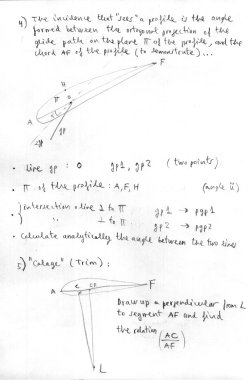 4) The incidence that "sees" a profile is the angle
formed between the ortogonal projection of the
glide path on the plane π of the profile, and the
chord AF of the profile (to demonstrate)...
F
H
A
gp
gp
• line gp : 0 gp1, gp2 (two points)
• π of the profile : A, F, H
• intersection a line ⊥ to π gp1 → pgp1
" ⊥ to π gp2 → pgp2
• Calculate analytically the angle between the two lines
5) "Calage" (Trim):
A C F
Draw up a perpendicular from L
to segment AF and find
the relation (AC/AF)
L